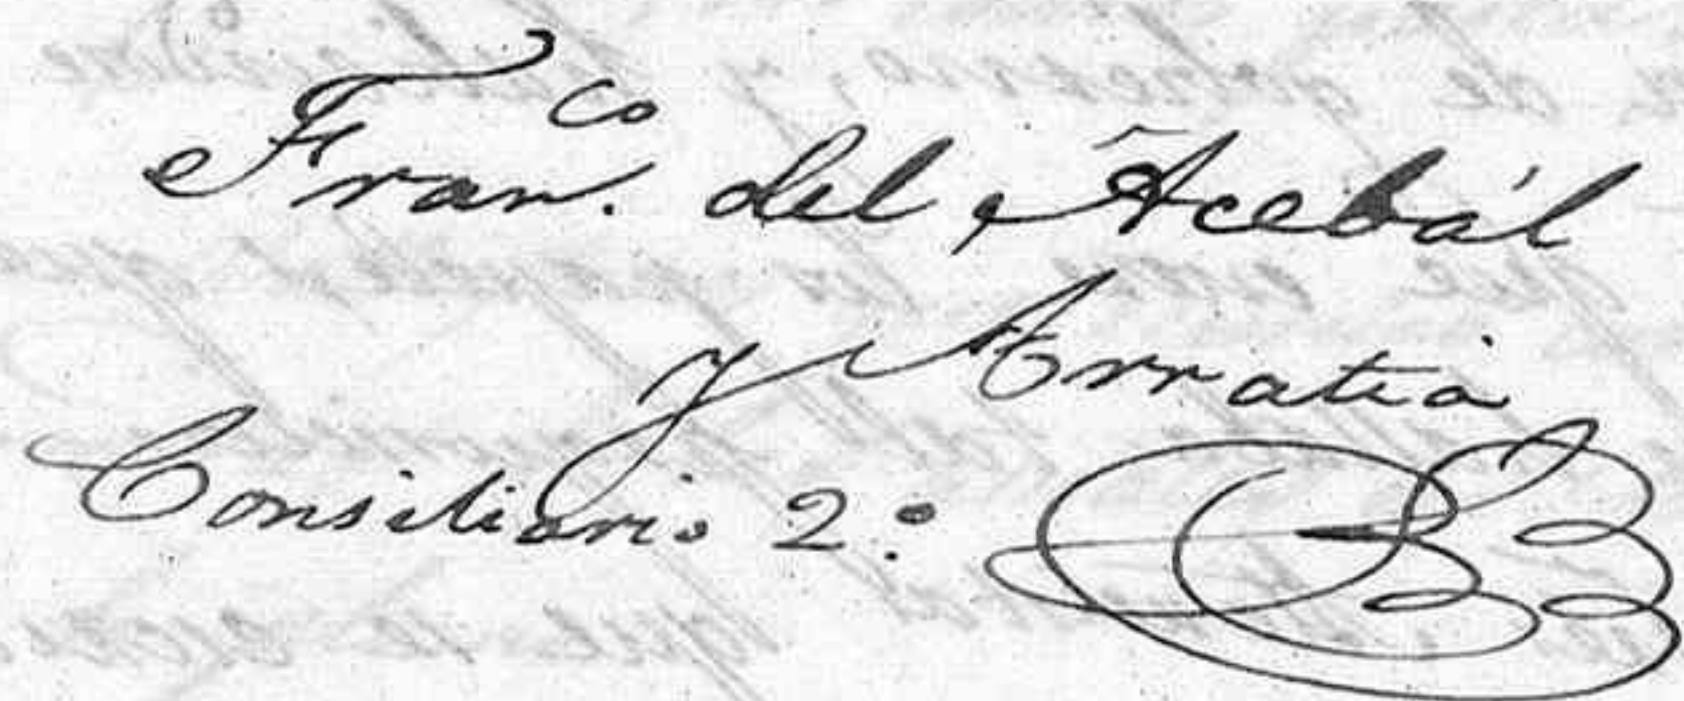 Fran.co del Acebál
y Arratia
Consiliario 2.º